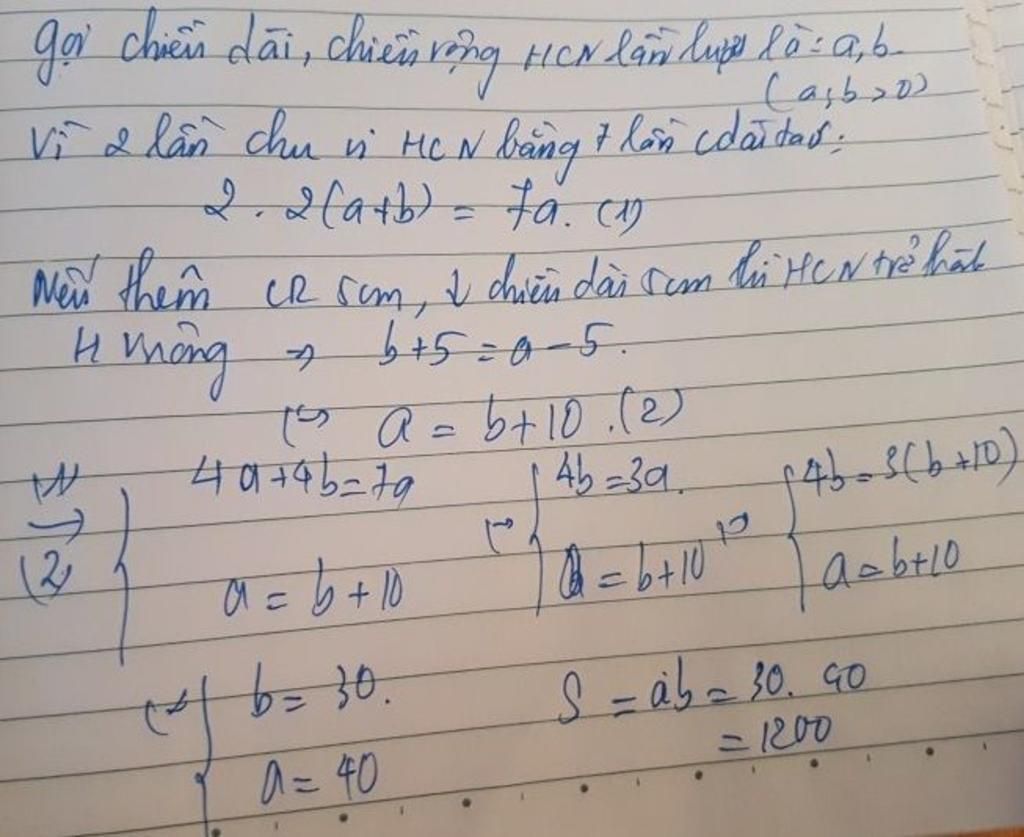 gọi chiều dài, chiều rộng HCN lần lượt là: a, b
(a; b > 0)
Vì 2 lần chu vi HCN bằng 7 lần cdài ta có:
2 . 2(a+b) = 7a. (1)
Nếu thêm CR 5cm, ↓ chiều dài 5cm thì HCN trở thành
H vuông => b+5 = a-5.
<=> a = b+10. (2)
(1) 4a+4b=7a <=> 4b=3a. <=> 4b=3(b+10)
(2) => a = b+10 a = b+10 a = b+10
<=> b = 30. S = ab = 30. 40
a = 40 = 1200